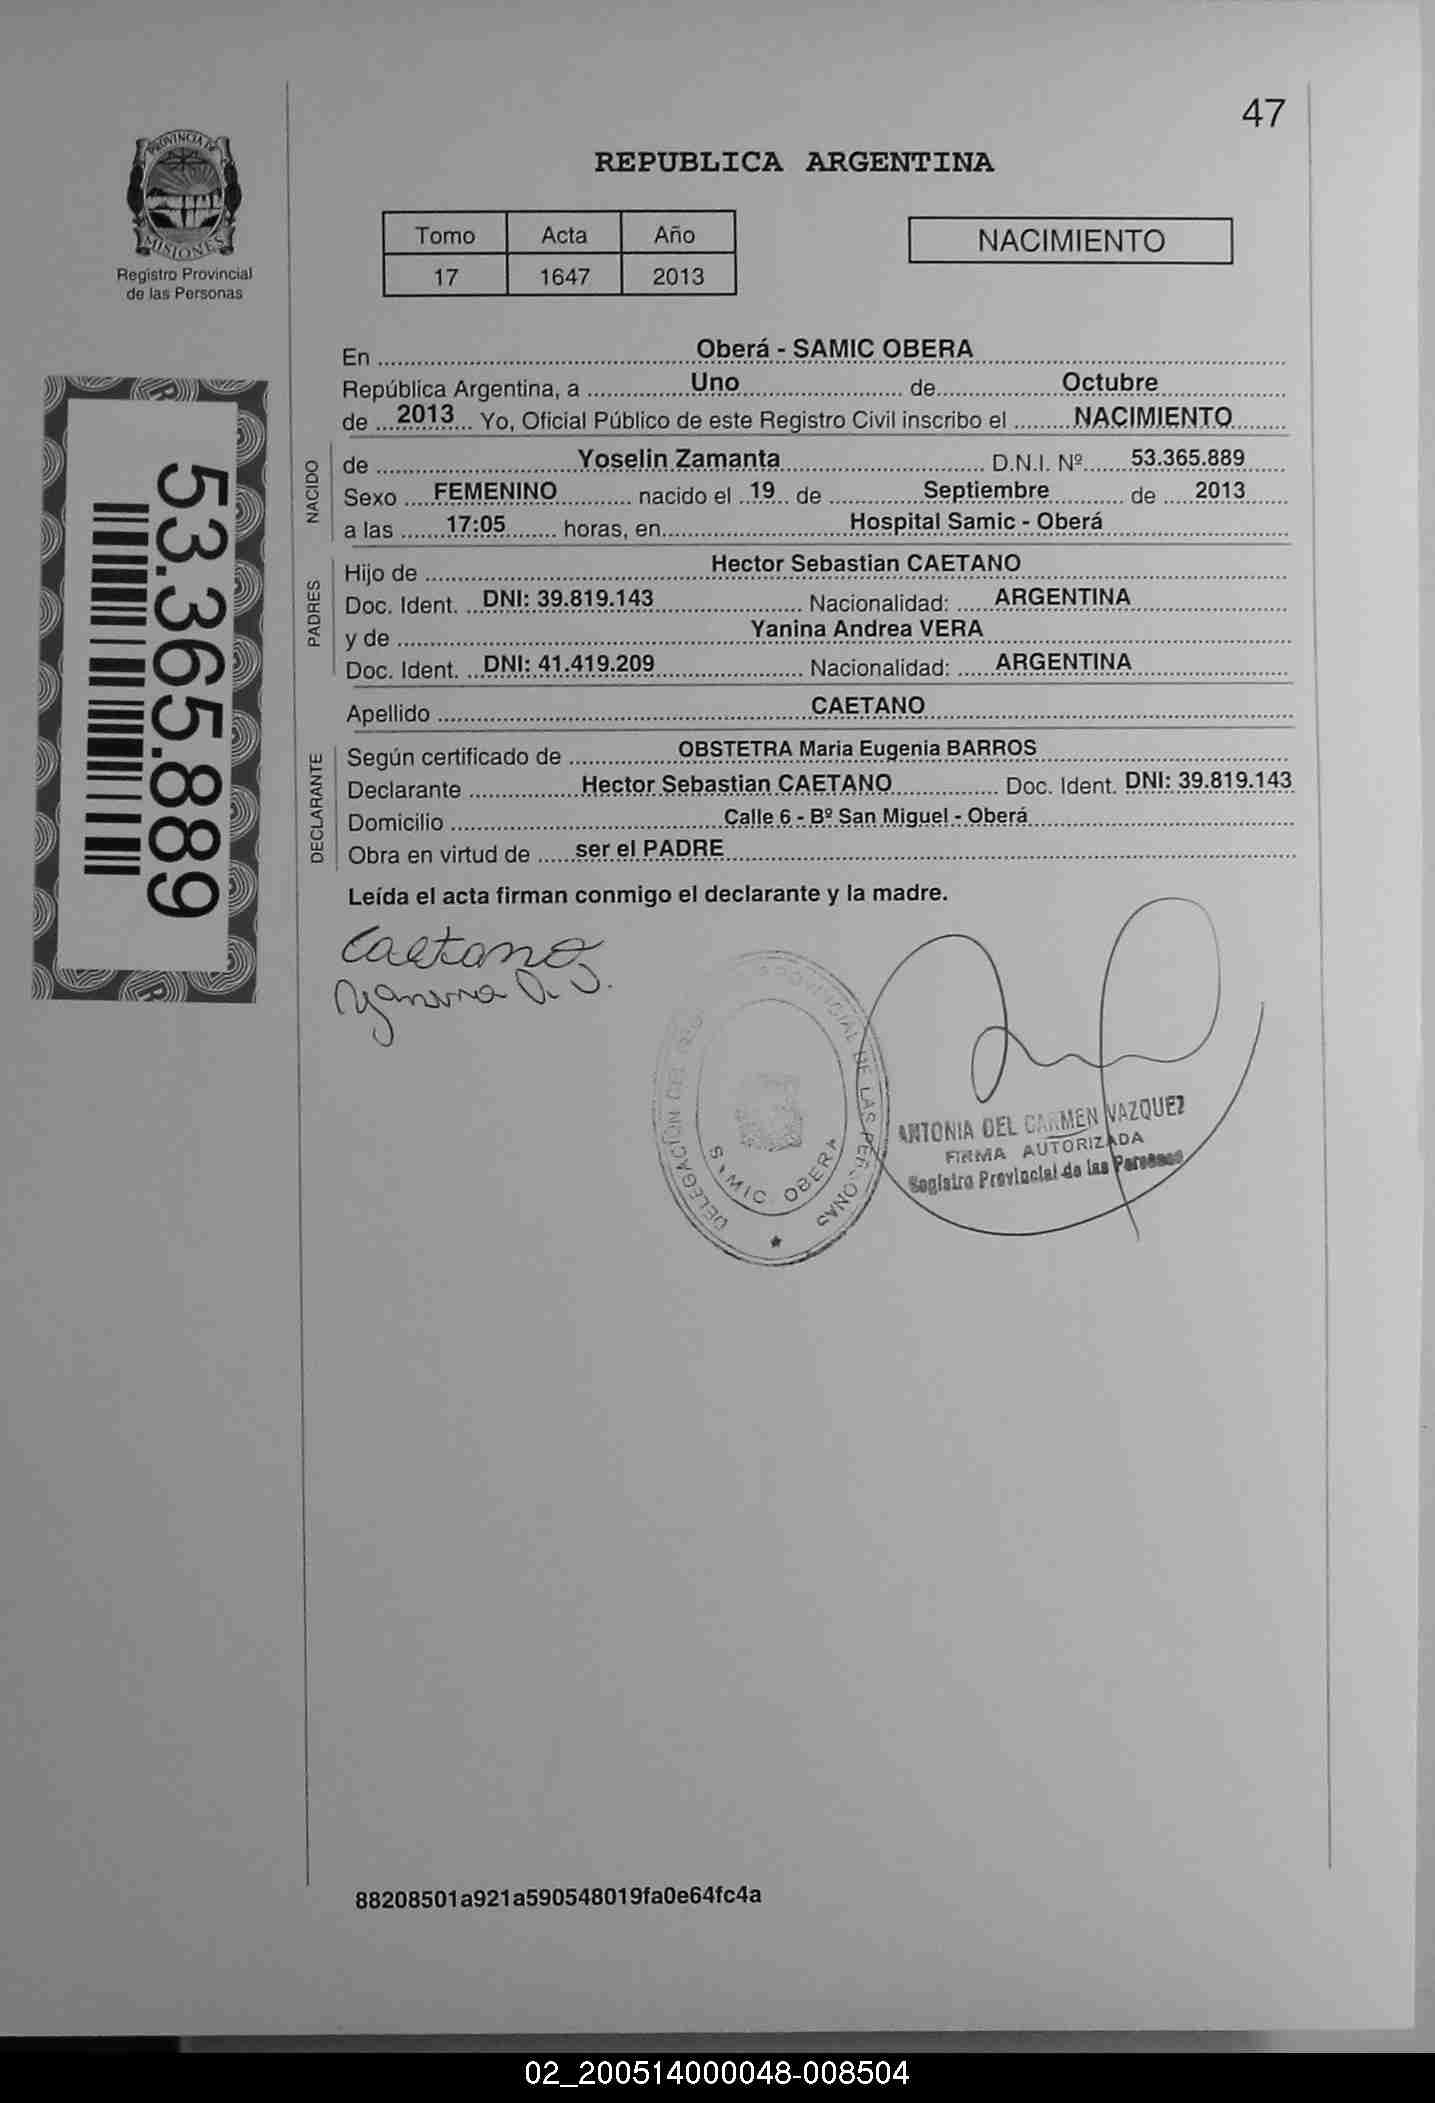 47
PROVINCIA DE
MISIONES
Registro Provincial
de las Personas
REPUBLICA ARGENTINA
Tomo Acta Año
17 1647 2013
NACIMIENTO
53.365.889
En Oberá - SAMIC OBERA
República Argentina, a Uno de Octubre
de 2013 Yo, Oficial Público de este Registro Civil inscribo el NACIMIENTO
NACIDO
de Yoselin Zamanta D.N.I. Nº 53.365.889
Sexo FEMENINO nacido el 19 de Septiembre de 2013
a las 17:05 horas, en Hospital Samic - Oberá
PADRES
Hijo de Hector Sebastian CAETANO
Doc. Ident. DNI: 39.819.143 Nacionalidad: ARGENTINA
y de Yanina Andrea VERA
Doc. Ident. DNI: 41.419.209 Nacionalidad: ARGENTINA
Apellido CAETANO
DECLARANTE
Según certificado de OBSTETRA Maria Eugenia BARROS
Declarante Hector Sebastian CAETANO Doc. Ident. DNI: 39.819.143
Domicilio Calle 6 - Bº San Miguel - Oberá
Obra en virtud de ser el PADRE
Leída el acta firman conmigo el declarante y la madre.
Caetano
DELEGACION DEL PROVINCIAL DE LAS PERSONAS
SAMIC OBERA
ANTONIA DEL CARMEN VAZQUEZ
FIRMA AUTORIZADA
Registro Provincial de las Personas
88208501a921a590548019fa0e64fc4a
02_200514000048-008504